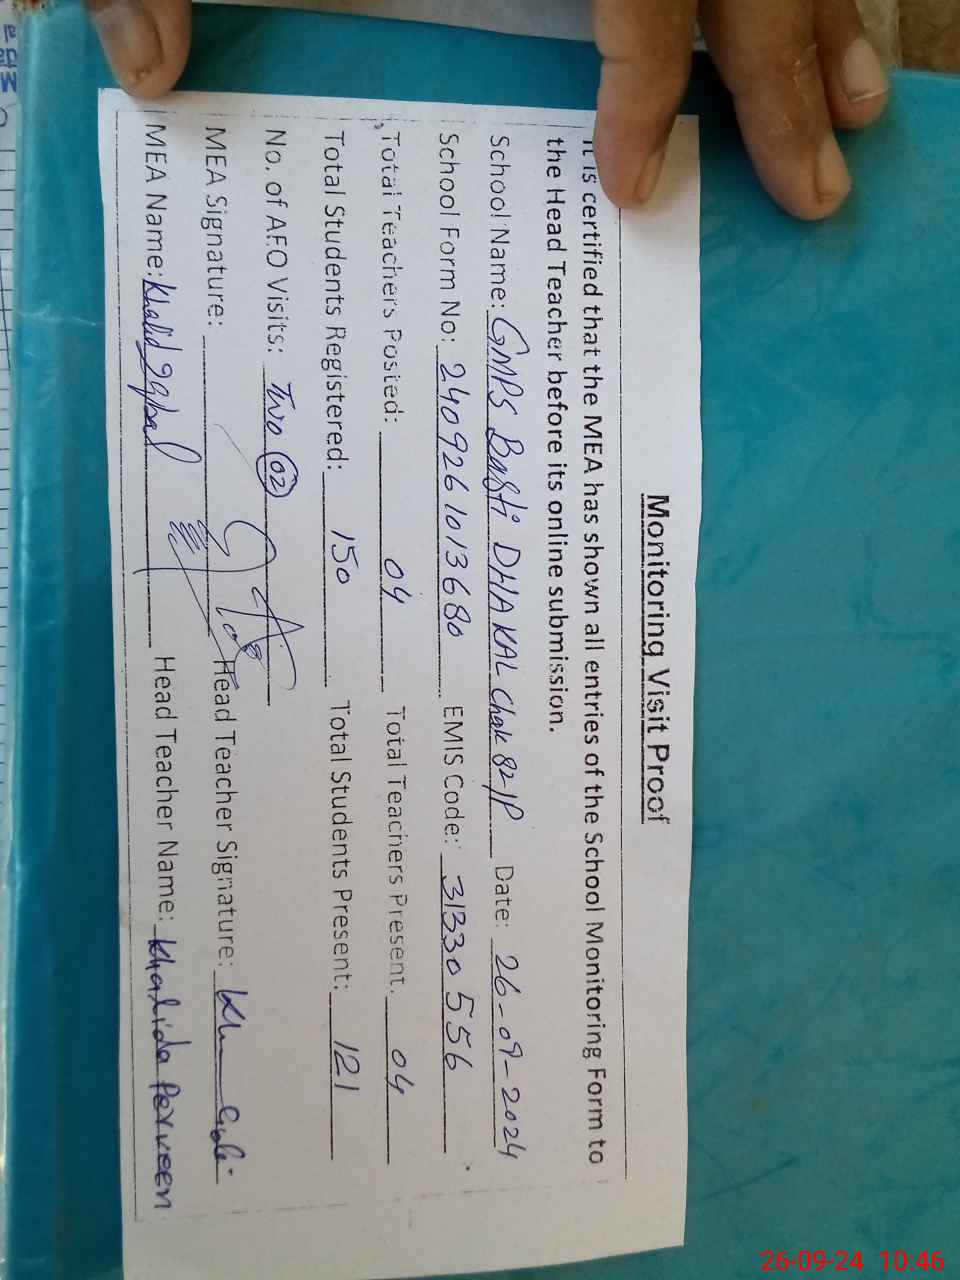 Monitoring Visit Proof
It is certified that the MEA has shown all entries of the School Monitoring Form to
the Head Teacher before its online submission.
School Name: GMPS Basti DHAKAL Chak 82-1P Date: 26-09-2024
School Form No: 240926101 3680 EMIS Code: 31330556
Total Teachers Posted: 04 Total Teachers Present. 04
Total Students Registered: 150 Total Students Present: 121
No. of AEO Visits: Two 02
MEA Signature: Head Teacher Signature:
MEA Name: Khalid Iqbal Head Teacher Name: Khalida Perveen
26-09-24 10:46